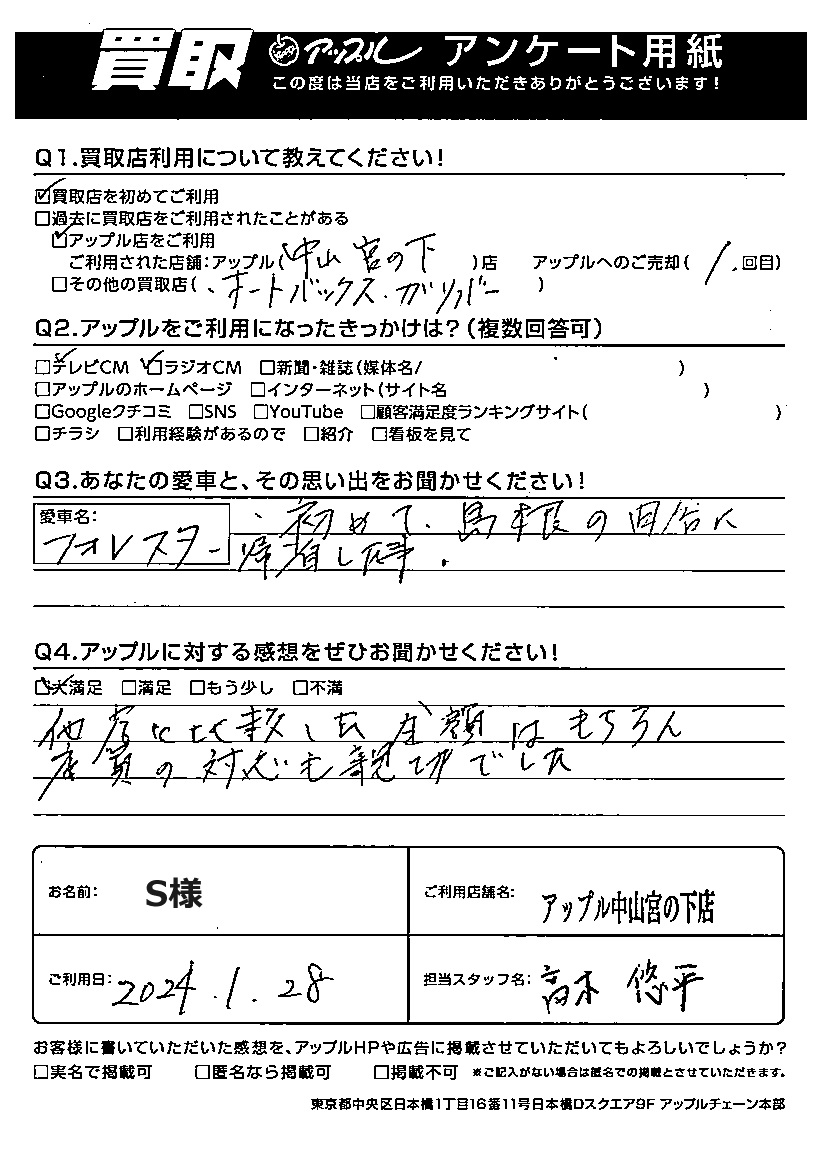 買取 アップル アンケート用紙
この度は当店をご利用いただきありがとうございます!
Q1.買取店利用について教えてください!
☑買取店を初めてご利用
□過去に買取店をご利用されたことがある
☑アップル店をご利用
ご利用された店舗:アップル(中山宮の下)店 アップルへのご売却(1.回目)
□その他の買取店(、オートバックス.ガリバー)
Q2.アップルをご利用になったきっかけは?(複数回答可)
☑テレビCM ☑ラジオCM □新聞・雑誌(媒体名/ )
□アップルのホームページ □インターネット(サイト名 )
□Googleクチコミ □SNS □YouTube □顧客満足度ランキングサイト( )
□チラシ □利用経験があるので □紹介 □看板を見て
Q3.あなたの愛車と、その思い出をお聞かせください!
愛車名:
フォレスター
、初めて、島根の田舎に
帰省した事.
Q4.アップルに対する感想をぜひお聞かせください!
☑大満足 □満足 □もう少し □不満
他店に比較した金額はもちろん
店員の対応も親切でした
お名前: S様
ご利用店舗名: アップル中山宮の下店
ご利用日: 2024.1.28
担当スタッフ名: 高木 悠平
お客様に書いていただいた感想を、アップルHPや広告に掲載させていただいてもよろしいでしょうか?
□実名で掲載可 □匿名なら掲載可 □掲載不可 ※ご記入がない場合は匿名での掲載とさせていただきます。
東京都中央区日本橋1丁目16番11号日本橋Dスクエア9F アップルチェーン本部